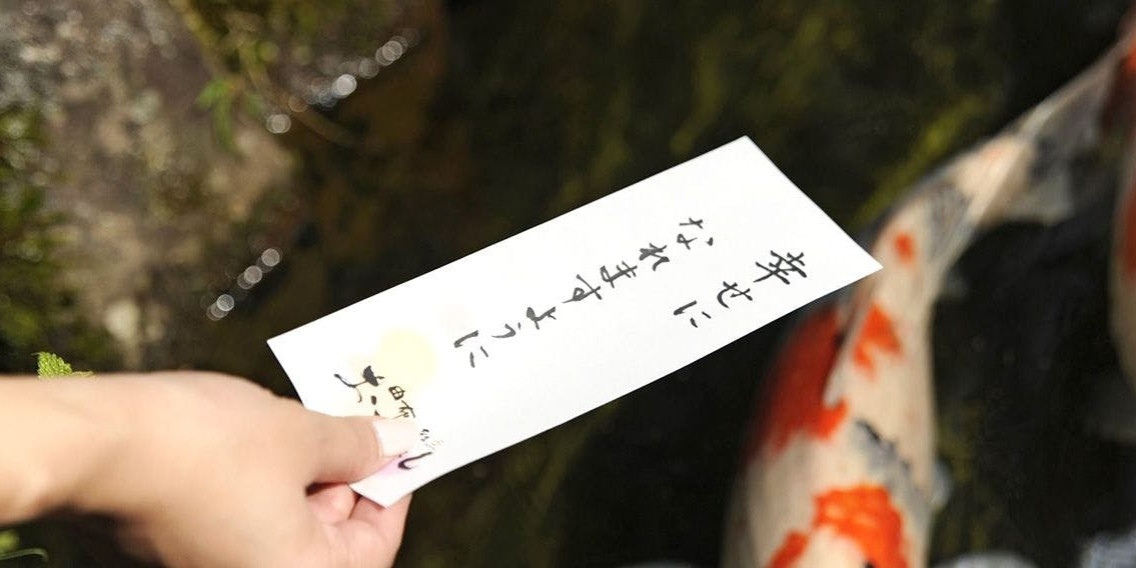 幸せに
なれますように